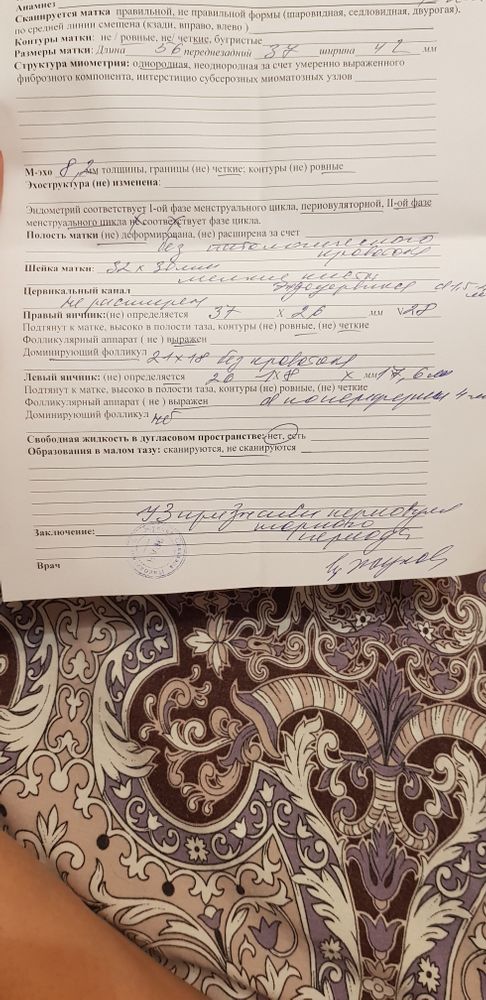 Анамнез
Сканируется матка правильной, не правильной формы (шаровидная, седловидная, двурогая),
по средней линии смещена (кзади, вправо, влево )
Контуры матки: не / ровные, не/ четкие, бугристые
Размеры матки: Длина 56 переднезадний 37 ширина 42 мм
Структура миометрия: однородная, неоднородная за счет умеренно выраженного
фиброзного компонента, интерстицио субсерозных миоматозных узлов
М-эхо 8,2 мм толщины, границы (не) четкие; контуры (не) ровные
Эхоструктура (не) изменена:
Эндометрий соответствует I-ой фазе менструального цикла, периовуляторной, II-ой фазе
менструального цикла не соответствует фазе цикла.
Полость матки (не) деформирована, (не) расширена за счет
без патологического
кровотока
Шейка матки: 32 х 30 мм
мелкие кисты
Цервикальный канал эндоцервикса d 1,5
не расширен
Правый яичник:(не) определяется 37 X 26 мм V 28
Подтянут к матке, высоко в полости таза, контуры (не) ровные, (не) четкие
Фолликулярный аппарат ( не ) выражен
Доминирующий фолликул 21х18 без кровотока
Левый яичник: (не) определяется 26 18 X мм 17,6
Подтянут к матке, высоко в полости таза, контуры (не) ровные, (не) четкие
Фолликулярный аппарат ( не ) выражен 4
Доминирующий фолликул нет
Свободная жидкость в дугласовом пространстве: нет, есть
Образования в малом тазу: сканируются, не сканируются
УЗ признаки периовуля
торного
Заключение: периода
Врач